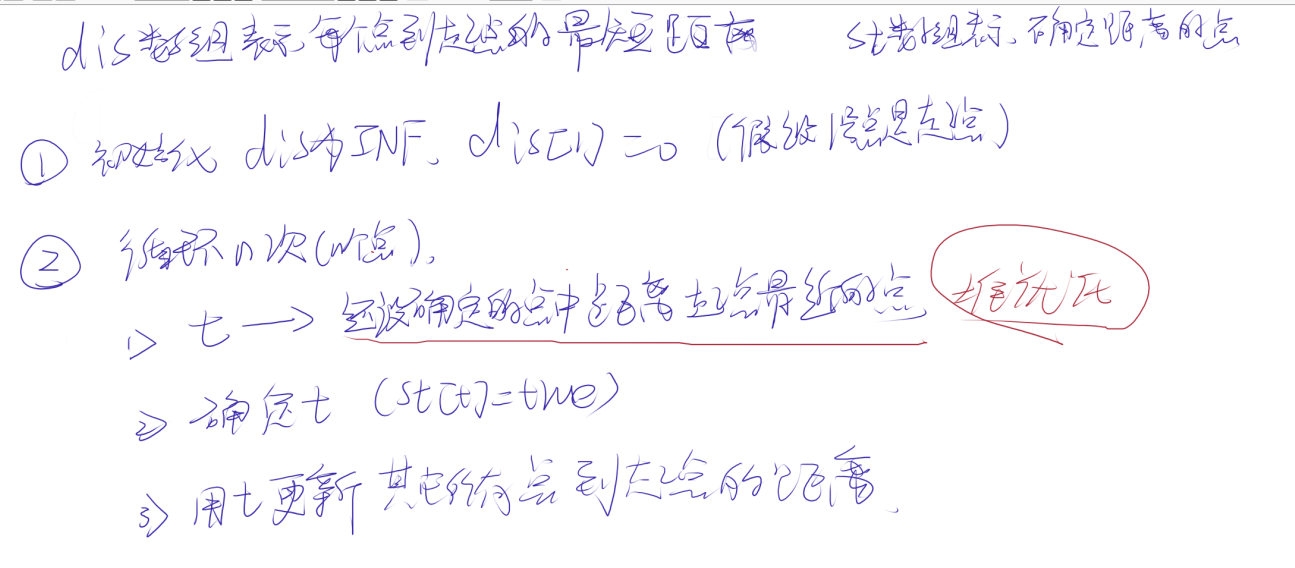 dis数组表示每个点到起点的最短距离 st数组表示确定距离的点
① 初始化 dis为INF, dis[1]=0 (假设1号点是起点)
② 循环n次(n个点),
1> t → 还没确定的点中距离起点最近的点 堆优化
2> 确定t (st[t]=true)
3> 用t更新其它所有点到起点的距离.